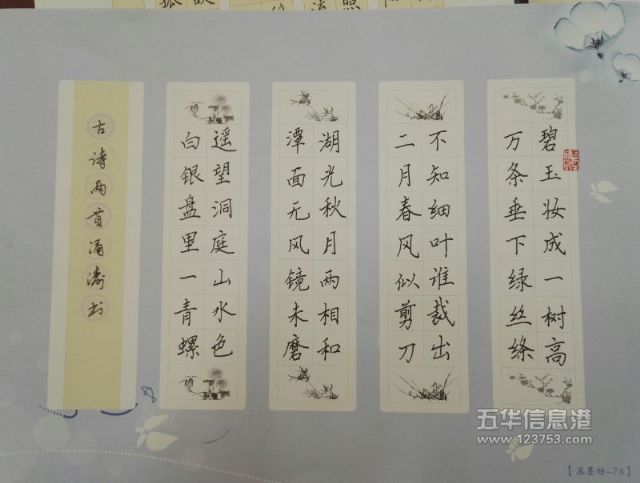 碧玉妆成一树高
万条垂下绿丝绦
不知细叶谁裁出
二月春风似剪刀
湖光秋月两相和
潭面无风镜未磨
遥望洞庭山水色
白银盘里一青螺
古诗两首涌涛书
五华信息港
www.123753.com
【慕墨坊-74】